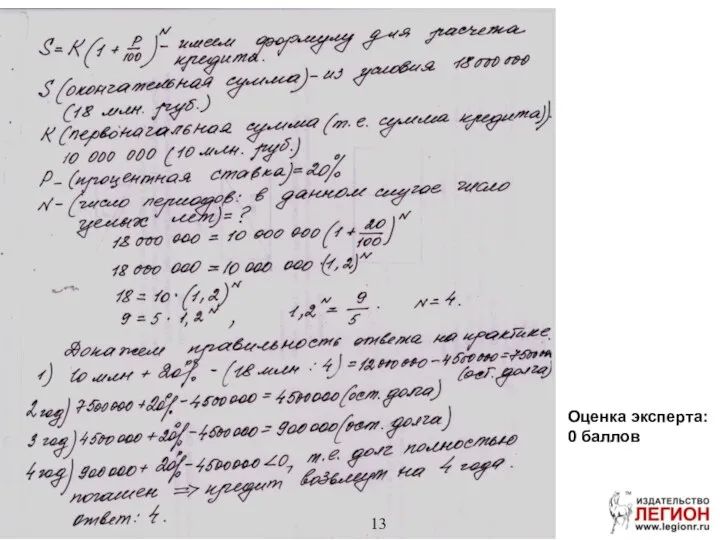 S = K(1 + P/100)^N – имеем формулу для расчета
кредита.
S (окончательная сумма) – из условия 18 000 000
(18 млн. руб.)
K (первоначальная сумма (т.е. сумма кредита)).
10 000 000 (10 млн. руб.)
P – (процентная ставка) = 20%
N – (число периодов: в данном случае число
целых лет) = ?
18 000 000 = 10 000 000 (1 + 20/100)^N
18 000 000 = 10 000 000 · (1,2)^N
18 = 10 · (1,2)^N
9 = 5 · 1,2^N , 1,2^N = 9/5 . N = 4.
Докажем правильность ответа на практике.
1) 10 млн + 20% - (18 млн : 4) = 12000000 - 4500000 = 7500000
(ост. долга)
2 год) 7500000 + 20% - 4500000 = 4500000 (ост. долга)
3 год) 4500000 + 20% - 4500000 = 900000 (ост. долга)
4 год) 900000 + 20% - 4500000 < 0, т.е. долг полностью
погашен => кредит возьмут на 4 года.
ответ: 4.
13
Оценка эксперта:
0 баллов
ИЗДАТЕЛЬСТВО
ЛЕГИОН
www.legionr.ru